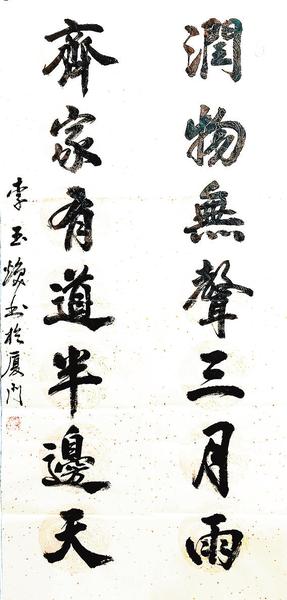 潤物無聲三月雨
齊家有道半邊天
李玉煥书於厦门